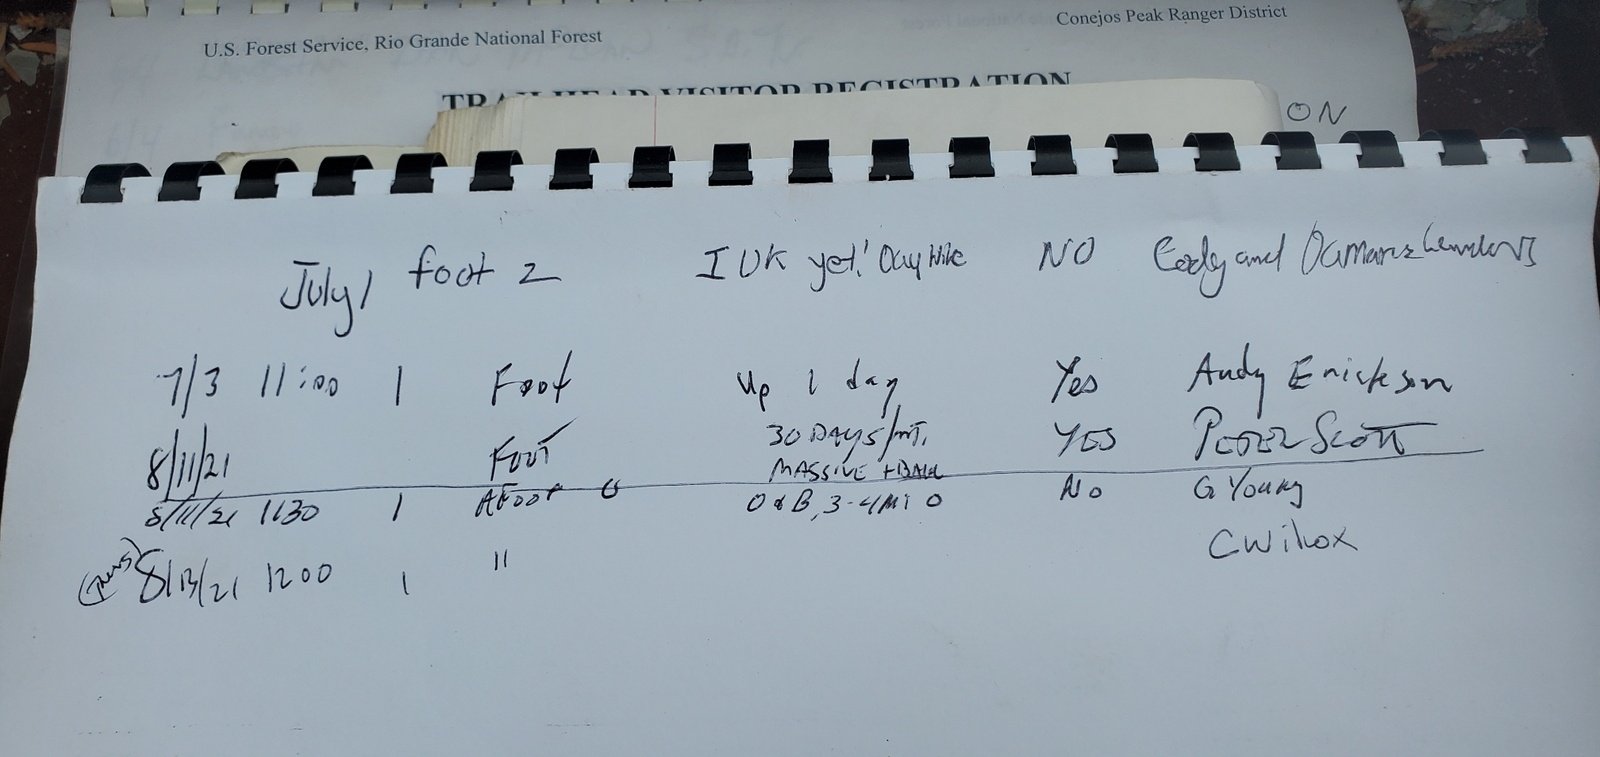 Conejos Peak Ranger District
U.S. Forest Service, Rio Grande National Forest
TRAILHEAD VISITOR REGISTRATION
ON
July 1 foot 2 I DK yet! Day hike NO Cody and
7/3 11:00 1 Foot Up 1 day Yes Andy Erickson
8/11/21 FOOT 30 DAYS/MT. YES PETER SCOTT
MASSIVE +
8/11/21 1130 1 AFOOT 0 O & B, 3-4 Mi No G Young
8/13/21 1200 1 " C Wilcox